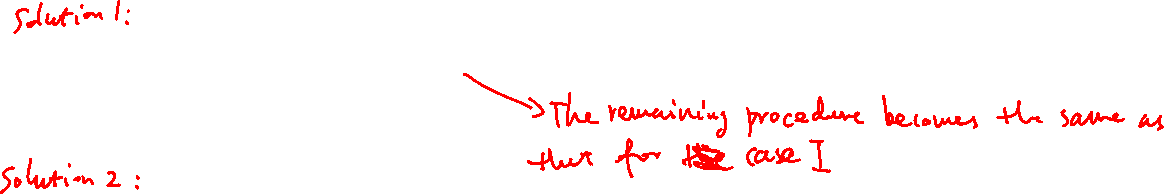 Solution 1:
The remaining procedure becomes the same as
that for case I
Solution 2: